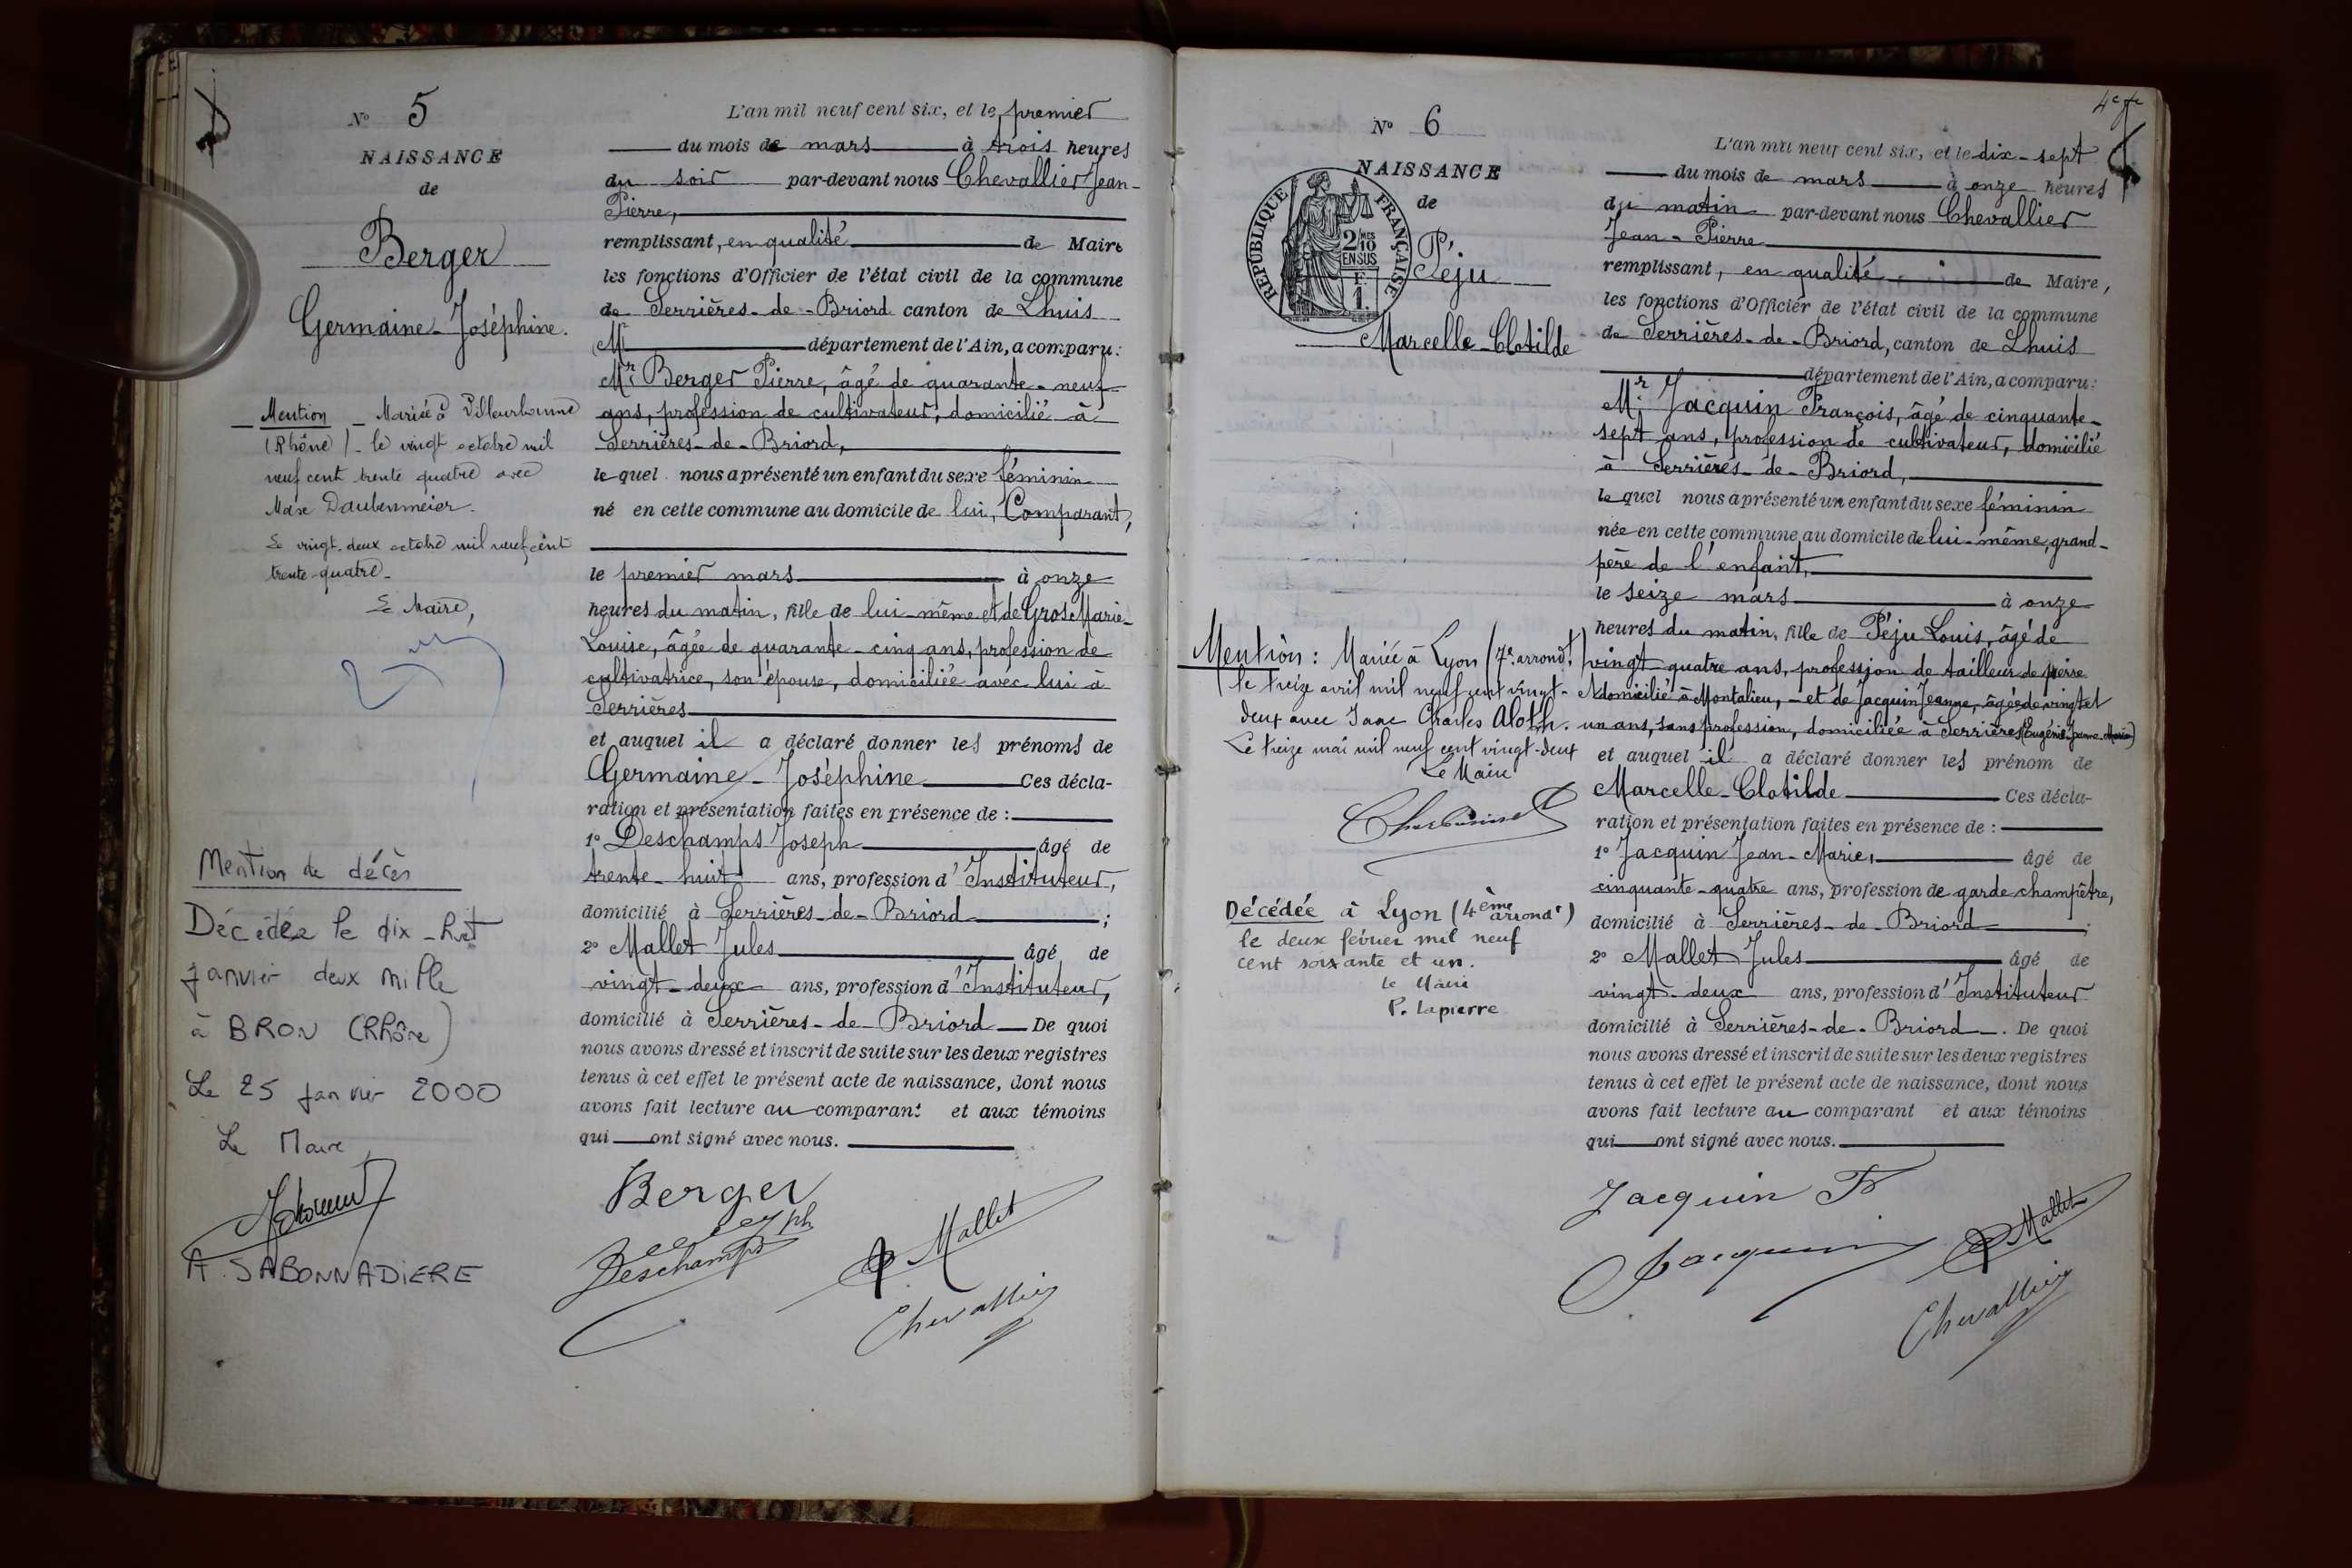 N° 5
NAISSANCE
de
Berger
Germaine-Joséphine.
Mention _ Mariée à Villeurbanne
(Rhône) _ le vingt octobre mil
neuf cent trente quatre avec
Max Daubenmeier.
Le vingt-deux octobre mil neuf cent
trente-quatre_
Le Maire,
Mention de décès
Décédée le dix-huit
janvier deux mille
à BRON (Rhône)
Le 25 janvier 2000
Le Maire
A. SABONNADIERE
L'an mil neuf cent six, et le premier
du mois de mars à trois heures
du soir par-devant nous Chevallier Jean-
Pierre,
remplissant, en qualité de Maire
les fonctions d'Officier de l'état civil de la commune
de Serrières-de-Briord canton de Lhuis
M département de l'Ain, a comparu:
Mr Berger Pierre, âgé de quarante-neuf
ans, profession de cultivateur, domicilié à
Serrières-de-Briord,
lequel nous a présenté un enfant du sexe féminin
né en cette commune au domicile de lui, Comparant,
le premier mars à onze
heures du matin, fille de lui-même et de Gros Marie-
Louise, âgée de quarante-cinq ans, profession de
cultivatrice, son épouse, domiciliée avec lui à
Serrières
et auquel il a déclaré donner les prénoms de
Germaine-Joséphine Ces décla-
ration et présentation faites en présence de :
1° Deschamps Joseph âgé de
trente-huit ans, profession d'Instituteur,
domicilié à Serrières-de-Briord ;
2° Mallet Jules âgé de
vingt-deux ans, profession d'Instituteur,
domicilié à Serrières-de-Briord De quoi
nous avons dressé et inscrit de suite sur les deux registres
tenus à cet effet le présent acte de naissance, dont nous
avons fait lecture au comparant et aux témoins
qui ont signé avec nous.
Berger
Deschamps
Mallet
Chevallier
4e fe
N° 6
NAISSANCE
de
RÉPUBLIQUE FRANÇAISE
2/10 MES
EN SUS
F.
1.
Péju
Marcelle-Clotilde
Mention : Mariée à Lyon (7e arrondt)
le treize avril mil neuf cent vingt-
deux avec Isaac Charles Aloth.
Le treize mai mil neuf cent vingt-deux
Le Maire
Décédée à Lyon (4ème arrondt)
le deux février mil neuf
cent soixante et un.
le Maire
P. Lapierre
L'an mil neuf cent six, et le dix-sept
du mois de mars à onze heures
du matin par-devant nous Chevallier
Jean-Pierre
remplissant, en qualité de Maire,
les fonctions d'Officier de l'état civil de la commune
de Serrières-de-Briord, canton de Lhuis
département de l'Ain, a comparu:
Mr Jacquin François, âgé de cinquante-
sept ans, profession de cultivateur, domicilié
à Serrières-de-Briord,
lequel nous a présenté un enfant du sexe féminin
née en cette commune au domicile de lui-même, grand-
père de l'enfant,
le seize mars à onze
heures du matin, fille de Péju Louis, âgé de
vingt-quatre ans, profession de tailleur de pierre
domicilié à Montalieu, - et de Jacquin Jeanne, âgée de vingt et
un ans, sans profession, domiciliée à Serrières (Eugénie-Jeanne-Marie)
et auquel il a déclaré donner les prénom de
Marcelle-Clotilde Ces décla-
ration et présentation faites en présence de :
1° Jacquin Jean-Marie, âgé de
cinquante-quatre ans, profession de garde champêtre,
domicilié à Serrières-de-Briord ;
2° Mallet Jules âgé de
vingt-deux ans, profession d'Instituteur
domicilié à Serrières-de-Briord. De quoi
nous avons dressé et inscrit de suite sur les deux registres
tenus à cet effet le présent acte de naissance, dont nous
avons fait lecture au comparant et aux témoins
qui ont signé avec nous.
Jacquin Fs
Jacquin
Mallet
Chevallier